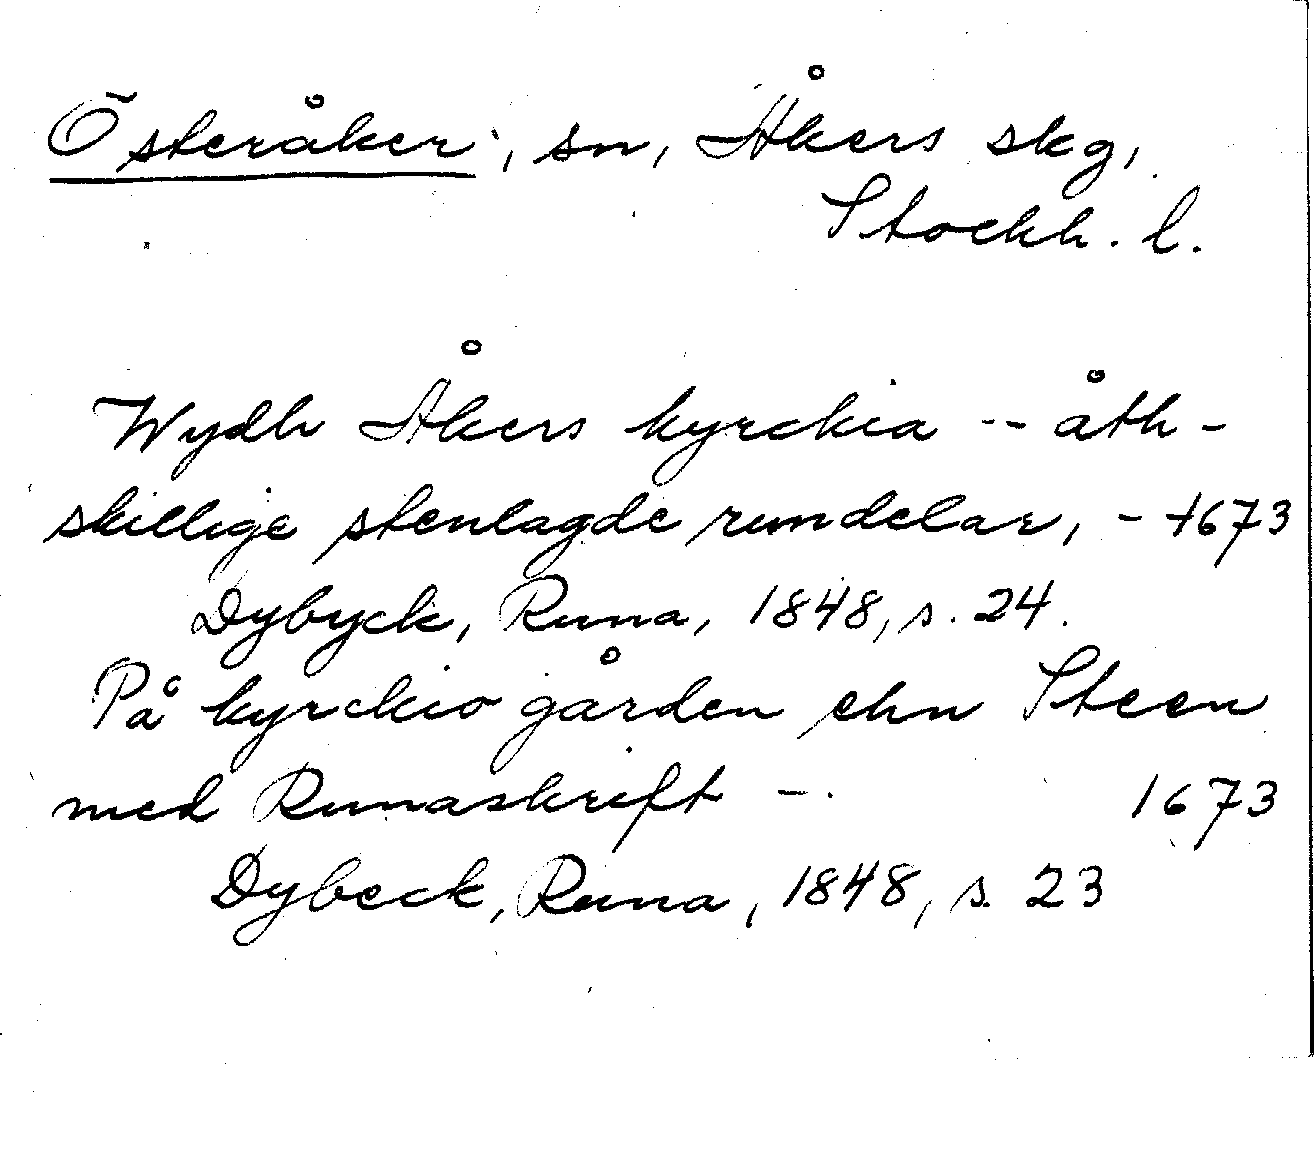 Österåker, sn, Åkers skg,
Stockh. l.
Wydh Åkers kyrckia -- åth-
skillige stenlagde rundelar, - 1673
Dybyck, Runa, 1848, s. 24.
På kyrckio gården ehn Steen
med Runaskrift -. 1673
Dybeck, Runa, 1848, s. 23